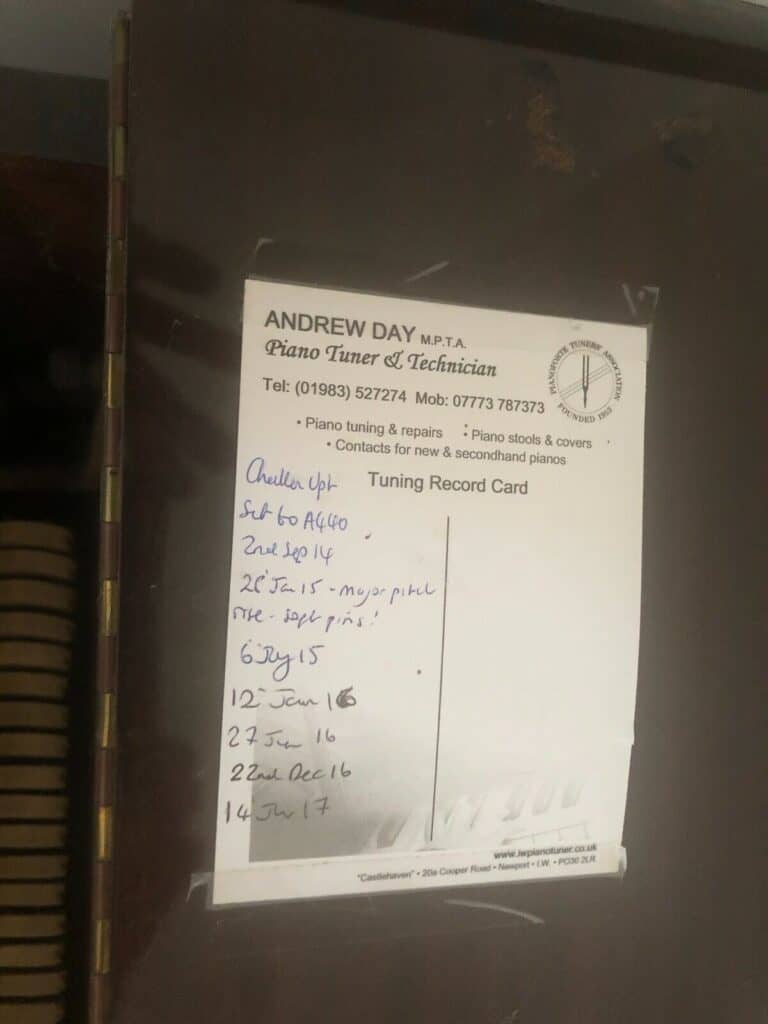 ANDREW DAY M.P.T.A.
Piano Tuner & Technician
PIANOFORTE TUNERS' ASSOCIATION
FOUNDED 1913
Tel: (01983) 527274 Mob: 07773 787373
• Piano tuning & repairs • Piano stools & covers
• Contacts for new & secondhand pianos
Tuning Record Card
Challen Upt
Set to A440
2nd Sep 14
Jan 15 - major pitch
rise - pins!
6 Jly 15
12 Jan 16
27 16
22nd Dec 16
14 17
www.iwpianotuner.co.uk
"Castlehaven" • 20a Cooper Road • Newport • I.W. • PO30 2LR